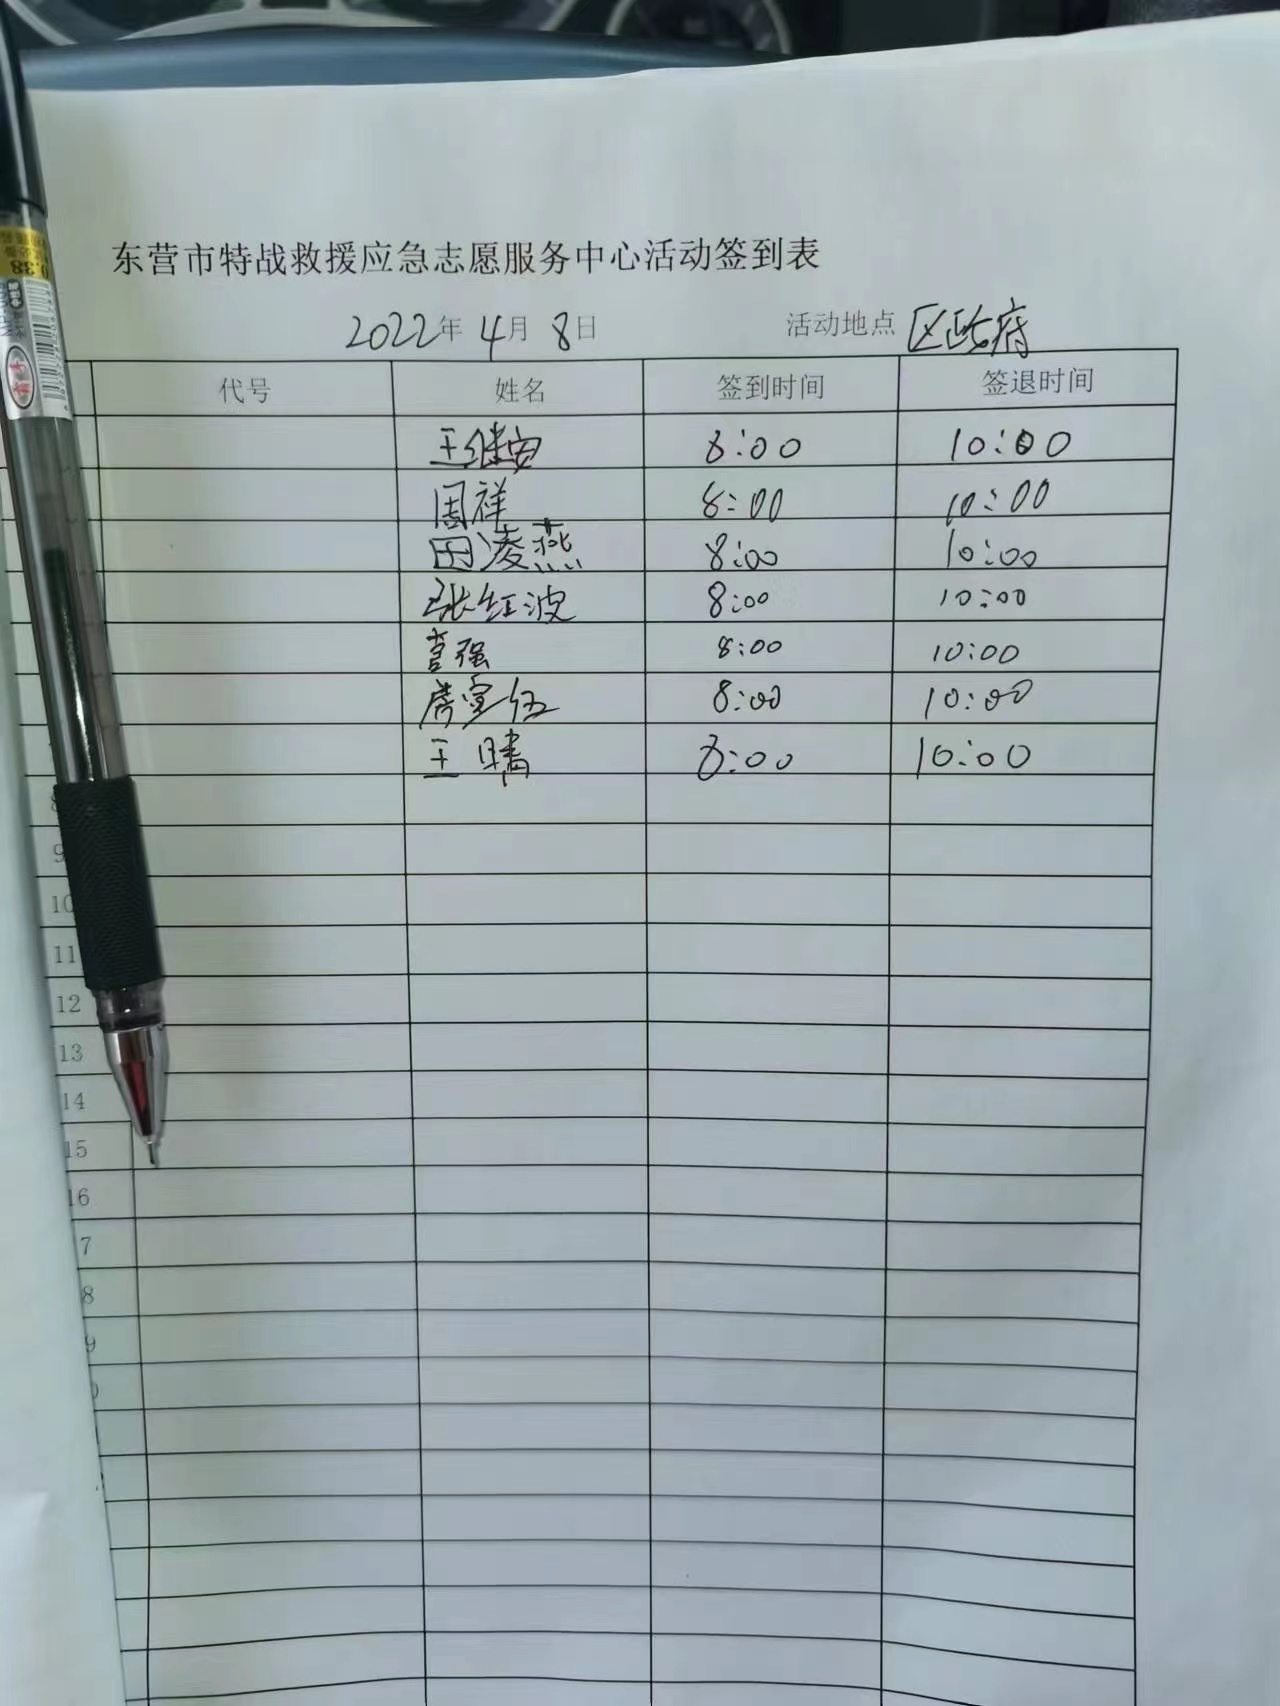 东营市特战救援应急志愿服务中心活动签到表
2022年 4月 8日 活动地点 区政府
代号 姓名 签到时间 签退时间
王继安 8:00 10:00
周祥 8:00 10:00
田凌燕 8:00 10:00
张红波 8:00 10:00
强 8:00 10:00
8:00 10:00
王晴 8:00 10:00
8
9
10
11
12
13
14
15
16
7
8
9
0.38